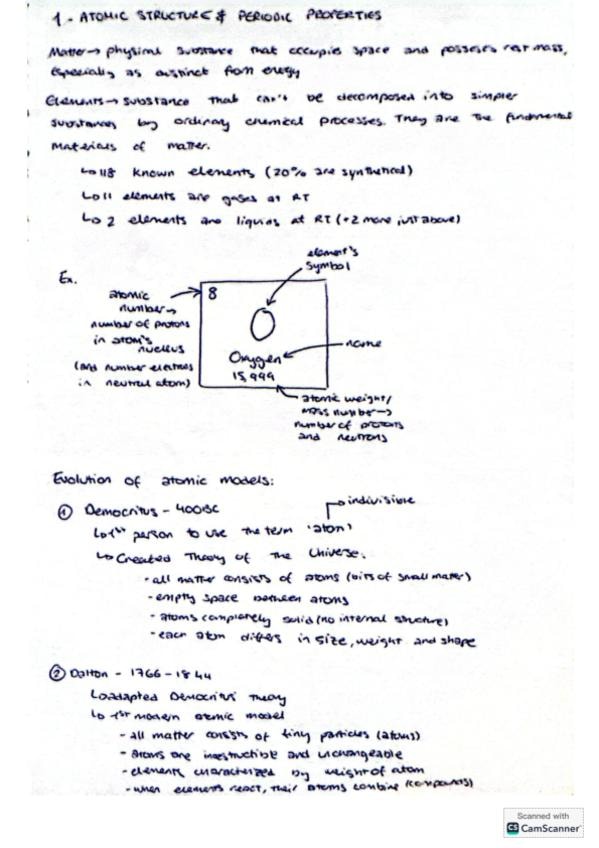 1.- ATOMIC STRUCTURE & PERIODIC PROPERTIES
Matter → physical substance that occupies space and possesses rest mass,
especially as distinct from energy
Elements → substance that can't be decomposed into simpler
substances by ordinary chemical processes. They are the fundamental
materials of matter.
↳ 118 known elements (20% are synthetical)
↳ 11 elements are gases at RT
↳ 2 elements are liquids at RT (+2 more just above)
element's
symbol
Ex.
atomic
number →
number of protons
in atom's
nucleus
(and number electrons
in neutral atom)
8
O
Oxygen
15,999
name
atomic weight/
mass number →
number of protons
and neutrons
Evolution of atomic models:
① Democritus - 400BC
indivisible
↳ 1st person to use the term 'atom'
↳ Created Theory of the Universe:
- all matter consists of atoms (bits of small matter)
- empty space between atoms
- atoms completely solid (no internal structure)
- each atom differs in size, weight and shape
② Dalton - 1766-1844
↳ adapted Democritus' Theory
↳ 1st modern atomic model
- all matter consists of tiny particles (atoms)
- atoms are indestructible and unchangeable
- elements characterized by weight of atom
- when elements react, their atoms combine (compounds)
Scanned with
CS CamScanner